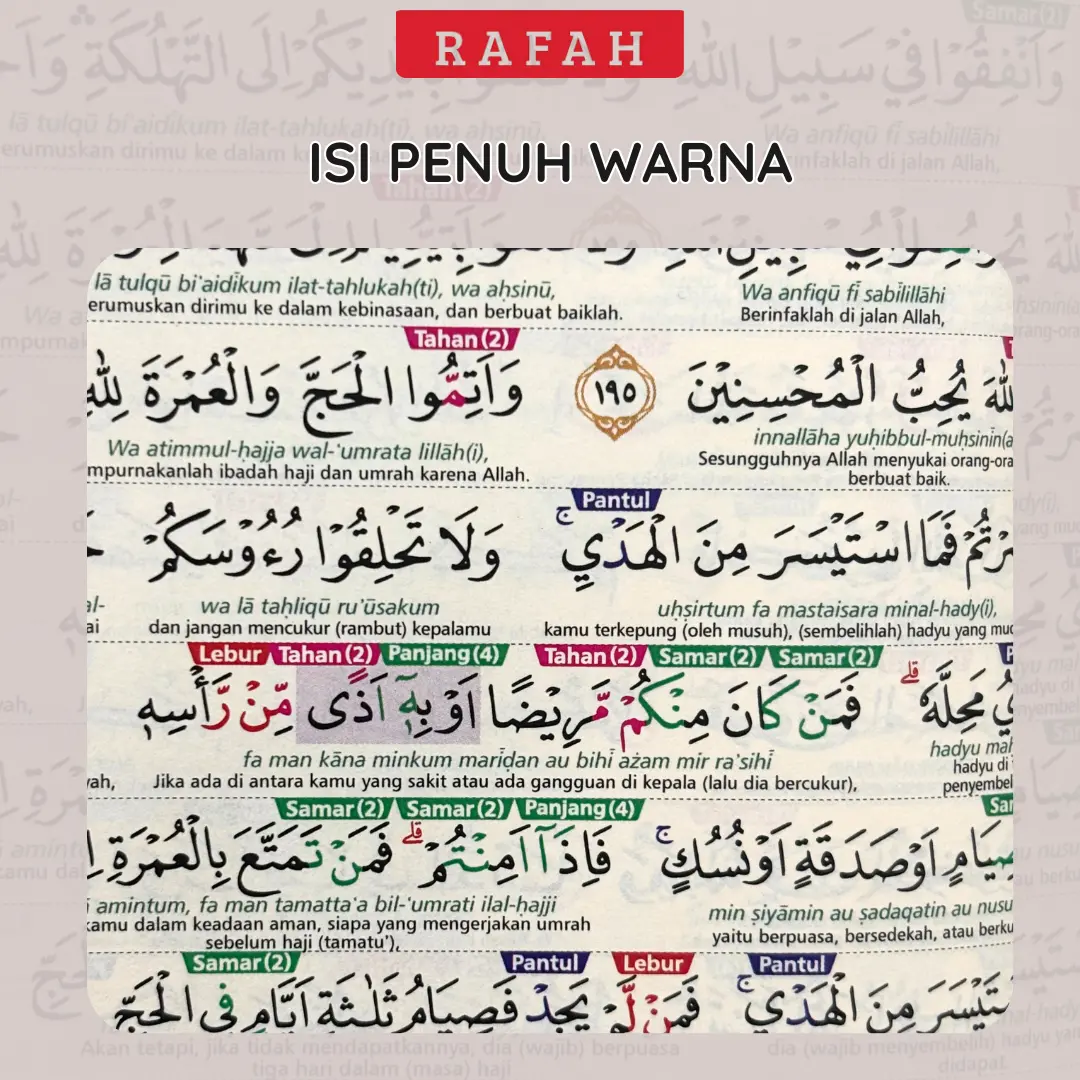 RAFAH
ISI PENUH WARNA
Wa anfiqū fī sabīlillāhi lā tulqū bi'aidīkum ilat-tahlukah(ti), wa aḥsinū,
Berinfaklah di jalan Allah, erumuskan dirimu ke dalam kebinasaan, dan berbuat baiklah.
Tahan (2)
يُحِبُّ الْمُحْسِنِيْنَ ١٩٥ وَاَتِمُّوا الْحَجَّ وَالْعُمْرَةَ لِلّٰهِ
innallāha yuḥibbul-muḥsinīn(a Wa atimmul-ḥajja wal-'umrata lillāh(i),
Sesungguhnya Allah menyukai orang-ora mpurnakanlah ibadah haji dan umrah karena Allah.
berbuat baik.
Pantul
فَمَا اسْتَيْسَرَ مِنَ الْهَدْيِۚ وَلَا تَحْلِقُوْا رُءُوْسَكُمْ
uḥṣirtum fa mastaisara minal-hady(i), wa lā taḥliqū ru'ūsakum al-
kamu terkepung (oleh musuh), (sembelihlah) hadyu yang mud dan jangan mencukur (rambut) kepalamu ai
Tahan (2) Samar (2) Samar (2) Lebur Tahan (2) Panjang (4)
مَحِلَّهٗ ۗ فَمَنْ كَانَ مِنْكُمْ مَّرِيْضًا اَوْ بِهٖٓ اَذًى مِّنْ رَّأْسِهٖ
hadyu maḥ fa man kāna minkum marīḍan au bihī ażam mir ra'sihī
hadyu di Jika ada di antara kamu yang sakit atau ada gangguan di kepala (lalu dia bercukur), yah,
penyembel
Samar (2) Samar (2) Panjang (4)
صِيَامٍ اَوْ صَدَقَةٍ اَوْ نُسُكٍ ۚ فَاِذَآ اَمِنْتُمْ ۗ فَمَنْ تَمَتَّعَ بِالْعُمْرَةِ
min ṣiyāmin au ṣadaqatin au nusu amintum, fa man tamatta'a bil-'umrati ilal-ḥajji
yaitu berpuasa, bersedekah, atau berku kamu dalam keadaan aman, siapa yang mengerjakan umrah
sebelum haji (tamatu'),
Pantul Lebur Pantul Samar (2)
مِنَ الْهَدْيِۚ فَمَنْ لَّمْ يَجِدْ فَصِيَامُ ثَلٰثَةِ اَيَّامٍ فِى الْحَجِّ